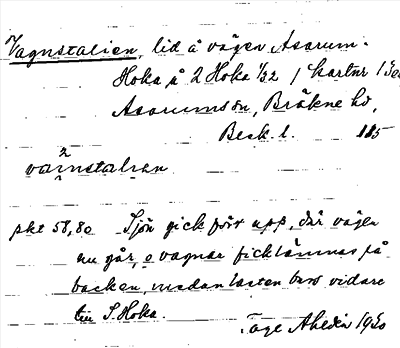 Vagnstalien, lid å vägen Asarum-
Hoka på 2 Hoka 1/32 / kartnr 130
Asarums sn, Bräkne hd,
Blek. l. 115
vaı̯nstalıan
pkt 58,80 Sjön gick förr upp, där vägen
nu går, o vagnar fick lämnas på
backen, medan lasten bars vidare
till S. Hoka.
Tage Ahldén 1930